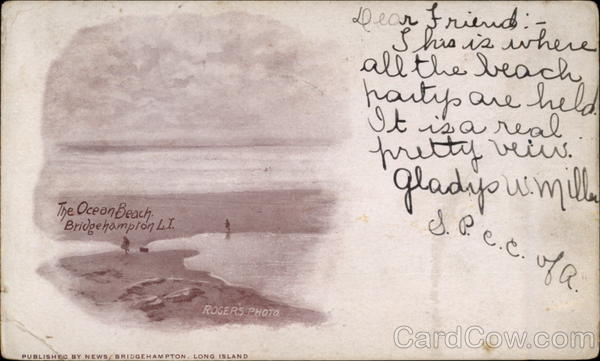 Dear Friend:-
This is where
all the beach
partys are held.
It is a real
pretty veiw.
Gladys W. Miller
S. P. C. C. of A.
The Ocean Beach.
Bridgehampton L.I.
ROGER'S PHOTO.
PUBLISHED BY NEWS, BRIDGEHAMPTON, LONG ISLAND
CardCow.com